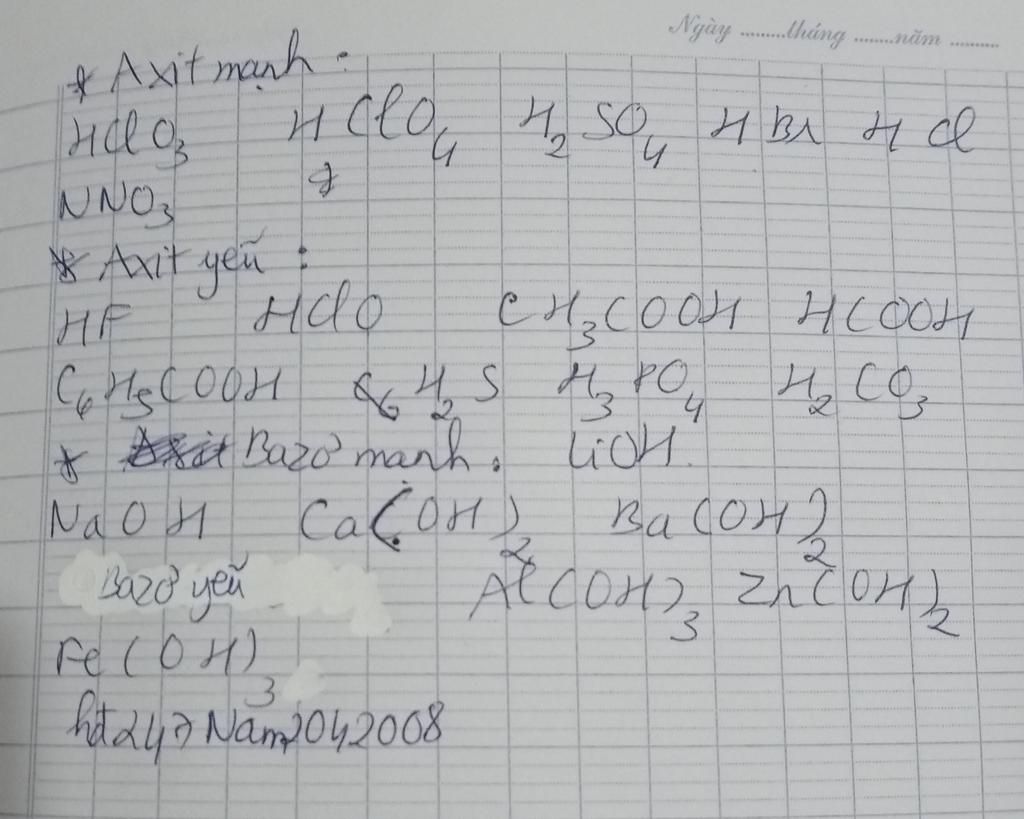 Ngày .........tháng ........năm ..........
* Axit mạnh :
HClO3 HClO4 H2SO4 HBr HCl
NNO3
* Axit yếu :
HF HClO CH3COOH HCOOH
C6H5COOH H2S H3PO4 H2CO3
* Bazơ mạnh. LiOH.
NaOH Ca(OH)2 Ba(OH)2
Bazơ yếu Al(OH)3 Zn(OH)2
Fe(OH)3
hđ247Nam2042008